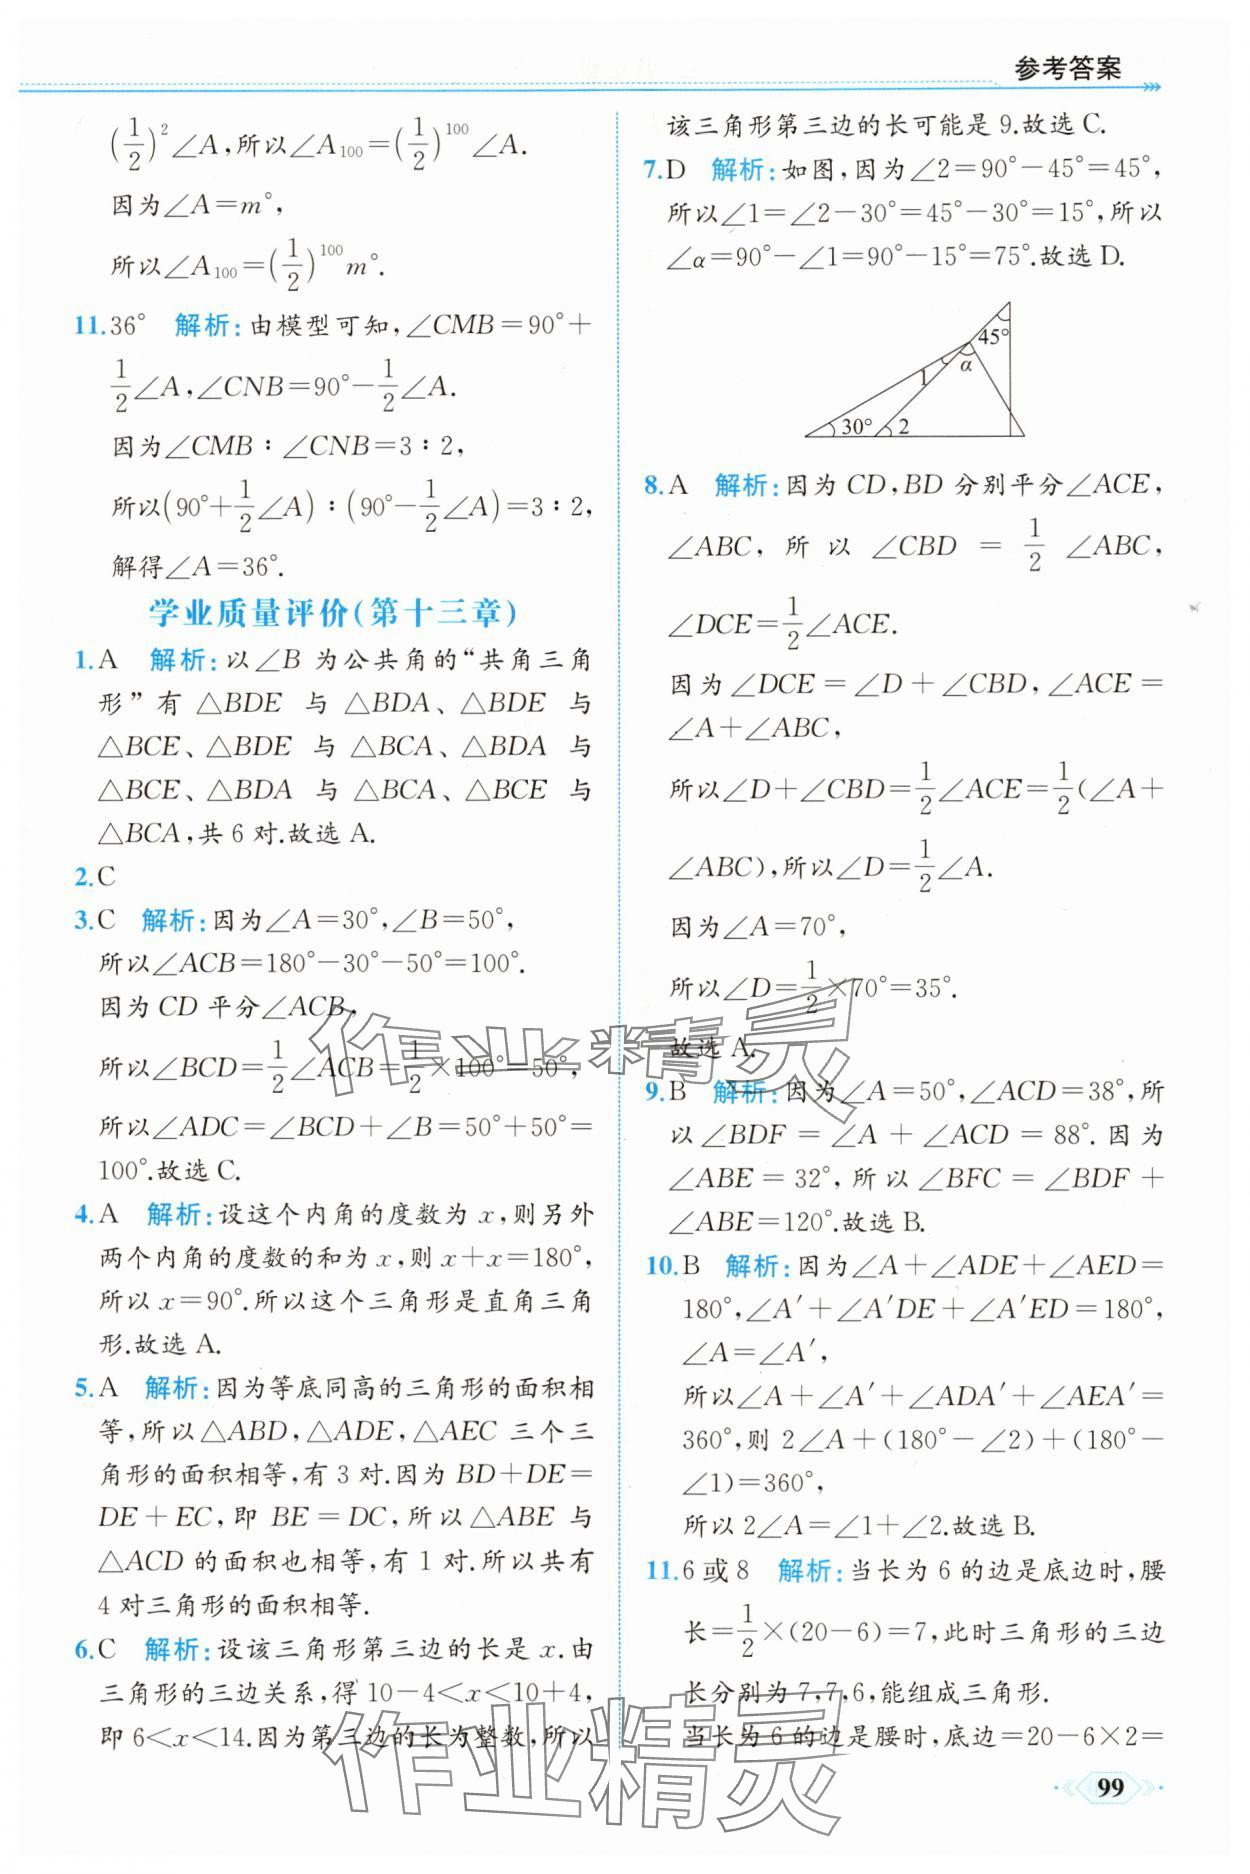 参考答案
(1/2)²∠A,所以∠A₁₀₀=(1/2)¹⁰⁰∠A.
因为∠A=m°,
所以∠A₁₀₀=(1/2)¹⁰⁰m°.
11.36° 解析:由模型可知,∠CMB=90°+
1/2∠A,∠CNB=90°-1/2∠A.
因为∠CMB:∠CNB=3:2,
所以(90°+1/2∠A):(90°-1/2∠A)=3:2,
解得∠A=36°.
学业质量评价(第十三章)
1.A 解析:以∠B为公共角的“共角三角
形”有△BDE与△BDA、△BDE与
△BCE、△BDE与△BCA、△BDA与
△BCE、△BDA与△BCA、△BCE与
△BCA,共6对.故选A.
2.C
3.C 解析:因为∠A=30°,∠B=50°,
所以∠ACB=180°-30°-50°=100°.
因为CD平分∠ACB,
所以∠BCD=1/2∠ACB=1/2×100°=50°,
所以∠ADC=∠BCD+∠B=50°+50°=
100°.故选C.
4.A 解析:设这个内角的度数为x,则另外
两个内角的度数的和为x,则x+x=180°,
所以x=90°.所以这个三角形是直角三角
形.故选A.
5.A 解析:因为等底同高的三角形的面积相
等,所以△ABD,△ADE,△AEC三个三
角形的面积相等,有3对.因为BD+DE=
DE+EC,即BE=DC,所以△ABE与
△ACD的面积也相等,有1对.所以共有
4对三角形的面积相等.
6.C 解析:设该三角形第三边的长是x.由
三角形的三边关系,得10-4<x<10+4,
即6<x<14.因为第三边的长为整数,所以
该三角形第三边的长可能是9.故选C.
7.D 解析:如图,因为∠2=90°-45°=45°,
所以∠1=∠2-30°=45°-30°=15°,所以
∠α=90°-∠1=90°-15°=75°.故选D.
45°
1 α
30° 2
8.A 解析:因为CD,BD分别平分∠ACE,
∠ABC,所以∠CBD=1/2∠ABC,
∠DCE=1/2∠ACE.
因为∠DCE=∠D+∠CBD,∠ACE=
∠A+∠ABC,
所以∠D+∠CBD=1/2∠ACE=1/2(∠A+
∠ABC),所以∠D=1/2∠A.
因为∠A=70°,
所以∠D=1/2×70°=35°.
故选A.
9.B 解析:因为∠A=50°,∠ACD=38°,所
以∠BDF=∠A+∠ACD=88°.因为
∠ABE=32°,所以∠BFC=∠BDF+
∠ABE=120°.故选B.
10.B 解析:因为∠A+∠ADE+∠AED=
180°,∠A′+∠A′DE+∠A′ED=180°,
∠A=∠A′,
所以∠A+∠A′+∠ADA′+∠AEA′=
360°,则2∠A+(180°-∠2)+(180°-
∠1)=360°,
所以2∠A=∠1+∠2.故选B.
11.6或8 解析:当长为6的边是底边时,腰
长=1/2×(20-6)=7,此时三角形的三边
长分别为7,7,6,能组成三角形.
当长为6的边是腰时,底边=20-6×2=
99
作业精灵
作业精灵